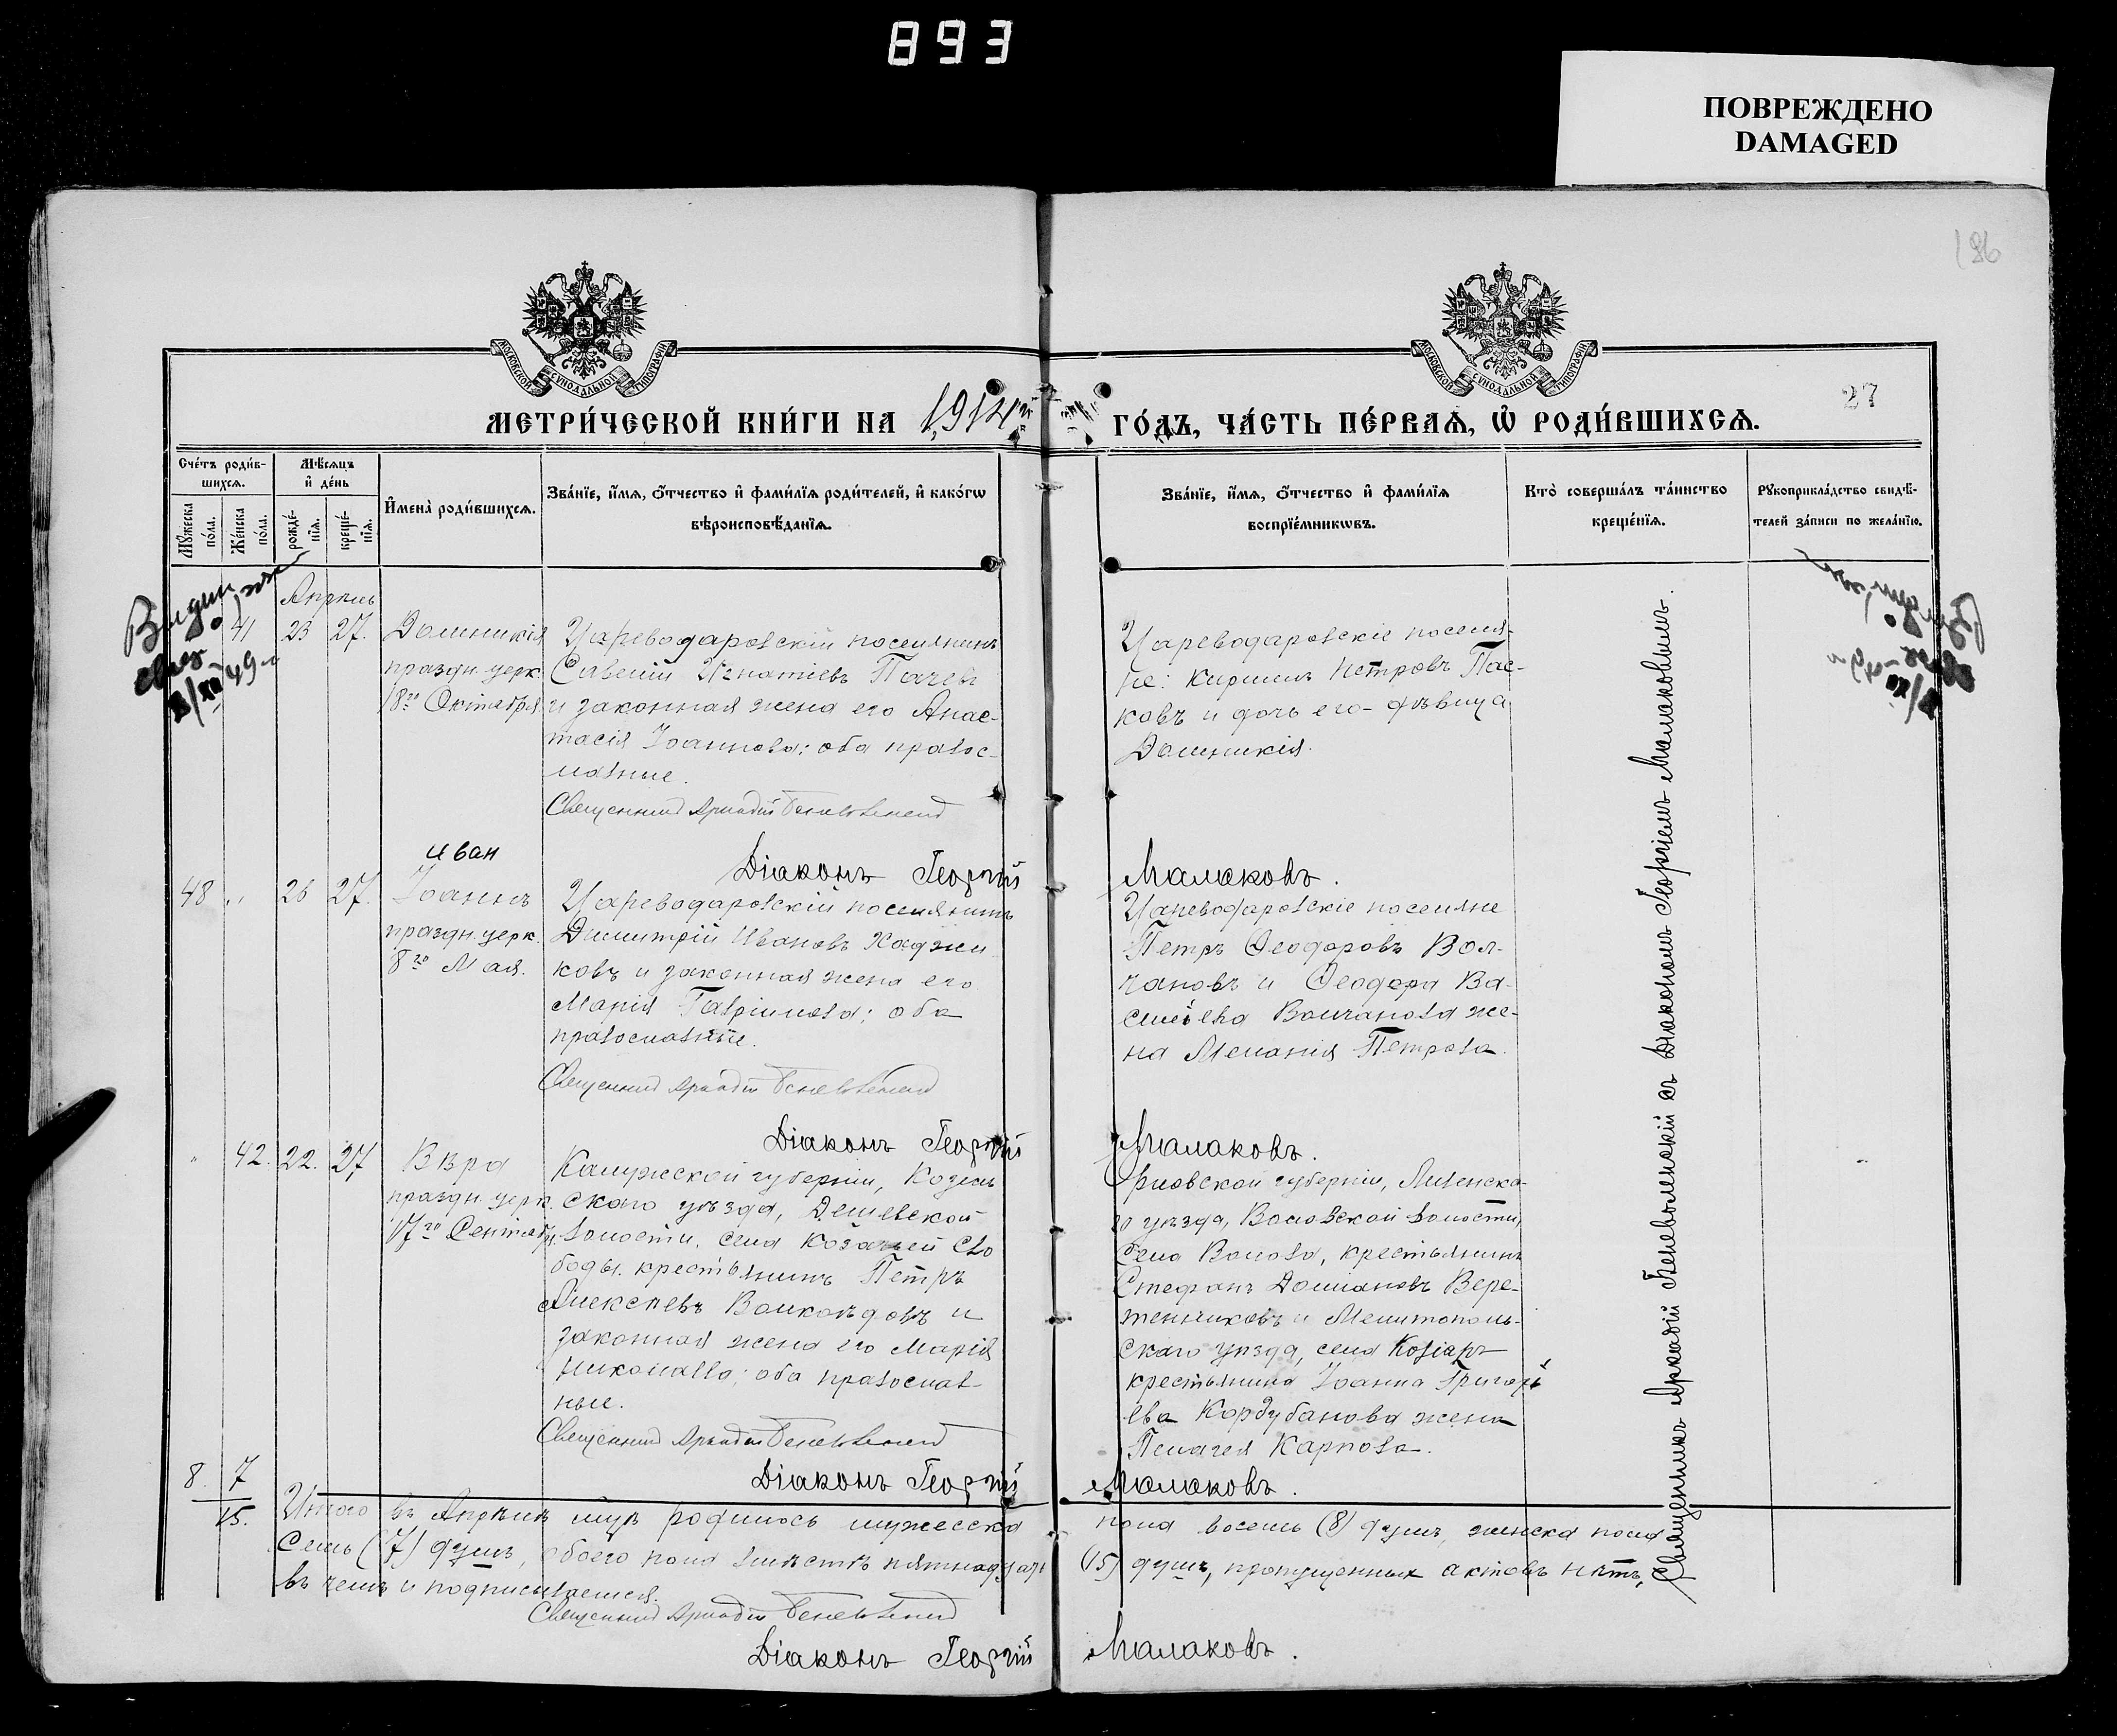 893
ПОВРЕЖДЕНО
DAMAGED
186
МОСКОВСКОЙ СѴНОДАЛЬНОЙ ТИПОГРАФІИ
МОСКОВСКОЙ СѴНОДАЛЬНОЙ ТИПОГРАФІИ
27
МЕТРИ́ЧЕСКОЙ КНИ́ГИ НА 1914й ГО́ДЪ, ЧА́СТЬ ПЕ́РВАѦ, Ѡ҆ РОДИ́ВШИХСѦ.
Сче́тъ роди́в-
шихсѧ.
Мѣ́сѧцъ
и҆ де́нь
Мꙋ́жеска
по́ла.
Же́нска
по́ла.
рожде́-
нїѧ.
креще́-
нїѧ.
И҆мена̀ роди́вшихсѧ.
Зва́нїе, и҆́мѧ, ѻ҆́тчество и҆ фами́лїѧ роди́телей, и҆ како́гѡ
вѣроисповѣ́данїѧ.
Зва́нїе, и҆́мѧ, ѻ҆́тчество и҆ фами́лїѧ
воспрїе́мникѡвъ.
Кто̀ соверша́лъ та́инство
креще́нїѧ.
Рꙋкоприкла́дство свидѣ́-
телей за́писи по жела́нїю.
Апрѣль
41 23 27.
Домникія
праздн. церк.
18го Октября
Цареводаровскій поселянинъ
Савелій Игнатіевъ Пачевъ
и законная жена его Анас-
тасія Іоаннова; оба правос-
лавные.
Священник Аркадій Беневоленский
Діаконъ Георгій Малаковъ.
Цареводаровскіе поселя-
не: Кириллъ Петровъ Пас-
ковъ и дочь его - дѣвица
Домникія.
Иван
48 " 26 27.
Іоаннъ
праздн. церк.
8го Мая.
Цареводаровскій поселянинъ
Димитрій Ивановъ Хаджи
ковъ и законная жена его
Марія Гавріилова; оба
православные.
Священник Аркадій Беневоленский
Діаконъ Георгій Малаковъ.
Цареводаровскіе поселяне
Петръ Ѳеодоровъ Вол-
чановъ и Ѳеодора Ва-
сильева Волчанова же-
на Меланія Петрова.
" 42. 22. 27
Вѣра
праздн. церк.
17го Сентяб.
Калужской губерніи, Козель
скаго уѣзда, Дешевской
волости, села Козачьей Сло
боды крестьянинъ Петръ
Алексѣевъ Волконѣдовъ и
законная жена его Марія
Николаева; оба православ-
ные.
Священник Аркадій Беневоленский
Діаконъ Георгій Малаковъ.
Орловской губерніи, Ливенска-
го уѣзда, Воловской волости,
села Волова, крестьянинъ
Стефанъ Доміановъ Вере-
тенниковъ и Мелитополь-
скаго уѣзда, села Козіаръ
крестьянина Іоанна Григорь
ева Кордубанова жена
Пелагея Карпова.
Священникъ Аркадій Беневоленскій съ Діакономъ Георгіемъ Малаковымъ.
8. 7
15.
Итого въ Апрѣлѣ мцѣ родилось мужеска пола восемь (8) душъ, женска пола
семь (7) душъ, обоего пола вмѣстѣ пятнадцать (15) душъ, пропущенныхъ актовъ нѣтъ,
въ чемъ и подписываемся.
Священник Аркадій Беневоленский
Діаконъ Георгій Малаковъ.